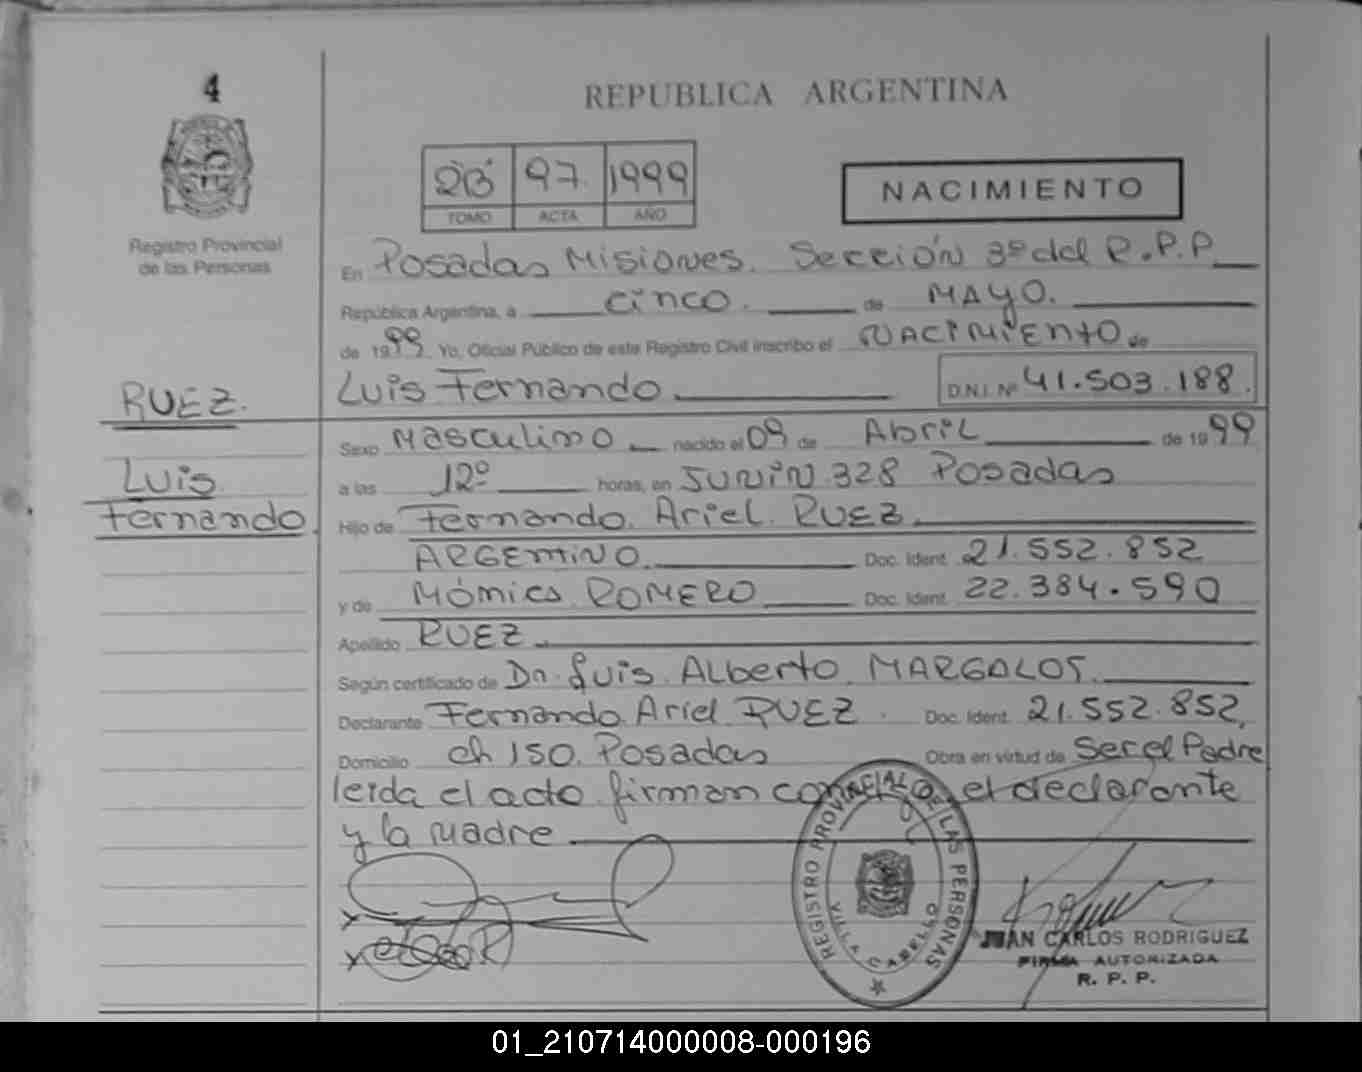 4
REPUBLICA ARGENTINA
2B 97 1999
TOMO ACTA AÑO
NACIMIENTO
Registro Provincial
de las Personas
En Posadas Misiones. Sección 3º del R.P.P.
República Argentina, a cinco. de MAYO.
de 1999 Yo, Oficial Público de este Registro Civil inscribo el NACIMIENTO de
Luis Fernando D.N.I. Nº 41.503.188.
RUEZ.
Luis
Fernando.
Sexo Masculino nacido el 09 de Abril de 1999
a las 12º horas, en JUNIN 328 Posadas
Hijo de Fernando Ariel RUEZ.
ARGENTINO. Doc. Ident. 21.552.852
y de Mónica ROMERO Doc. Ident. 22.384.590
Apellido RUEZ.
Según certificado de Dn. Luis Alberto
Declarante Fernando Ariel RUEZ. Doc. Ident. 21.552.852,
Domicilio ch 150. Posadas Obra en virtud de Ser el Padre
leida el acto firman el declarante
y la madre
REGISTRO PROVINCIAL DE LAS PERSONAS
VILLA CABELLO
JUAN CARLOS RODRIGUEZ
FIRMA AUTORIZADA
R. P. P.
01_210714000008-000196